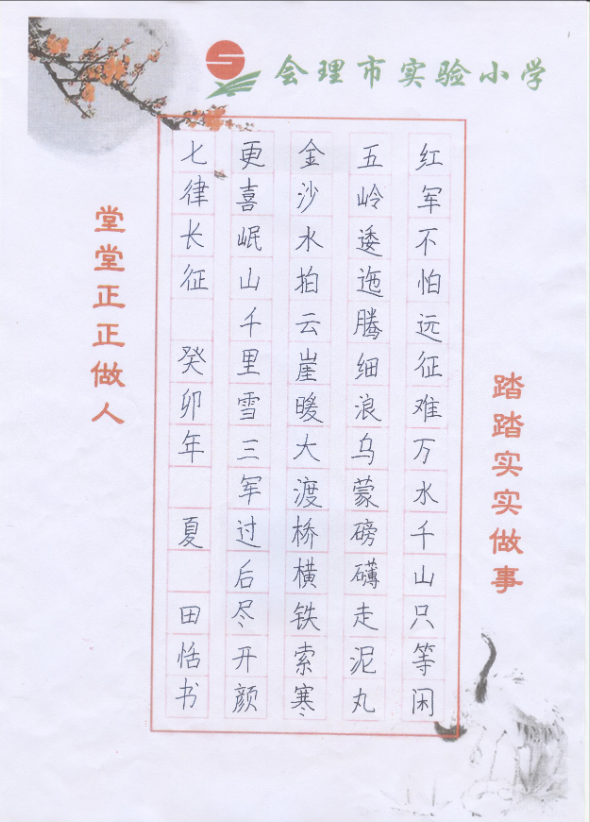 会理市实验小学
踏踏实实做事
红军不怕远征难万水千山只等闲
五岭逶迤腾细浪乌蒙磅礴走泥丸
金沙水拍云崖暖大渡桥横铁索寒
更喜岷山千里雪三军过后尽开颜
七律长征 癸卯年 夏 田恬书
堂堂正正做人